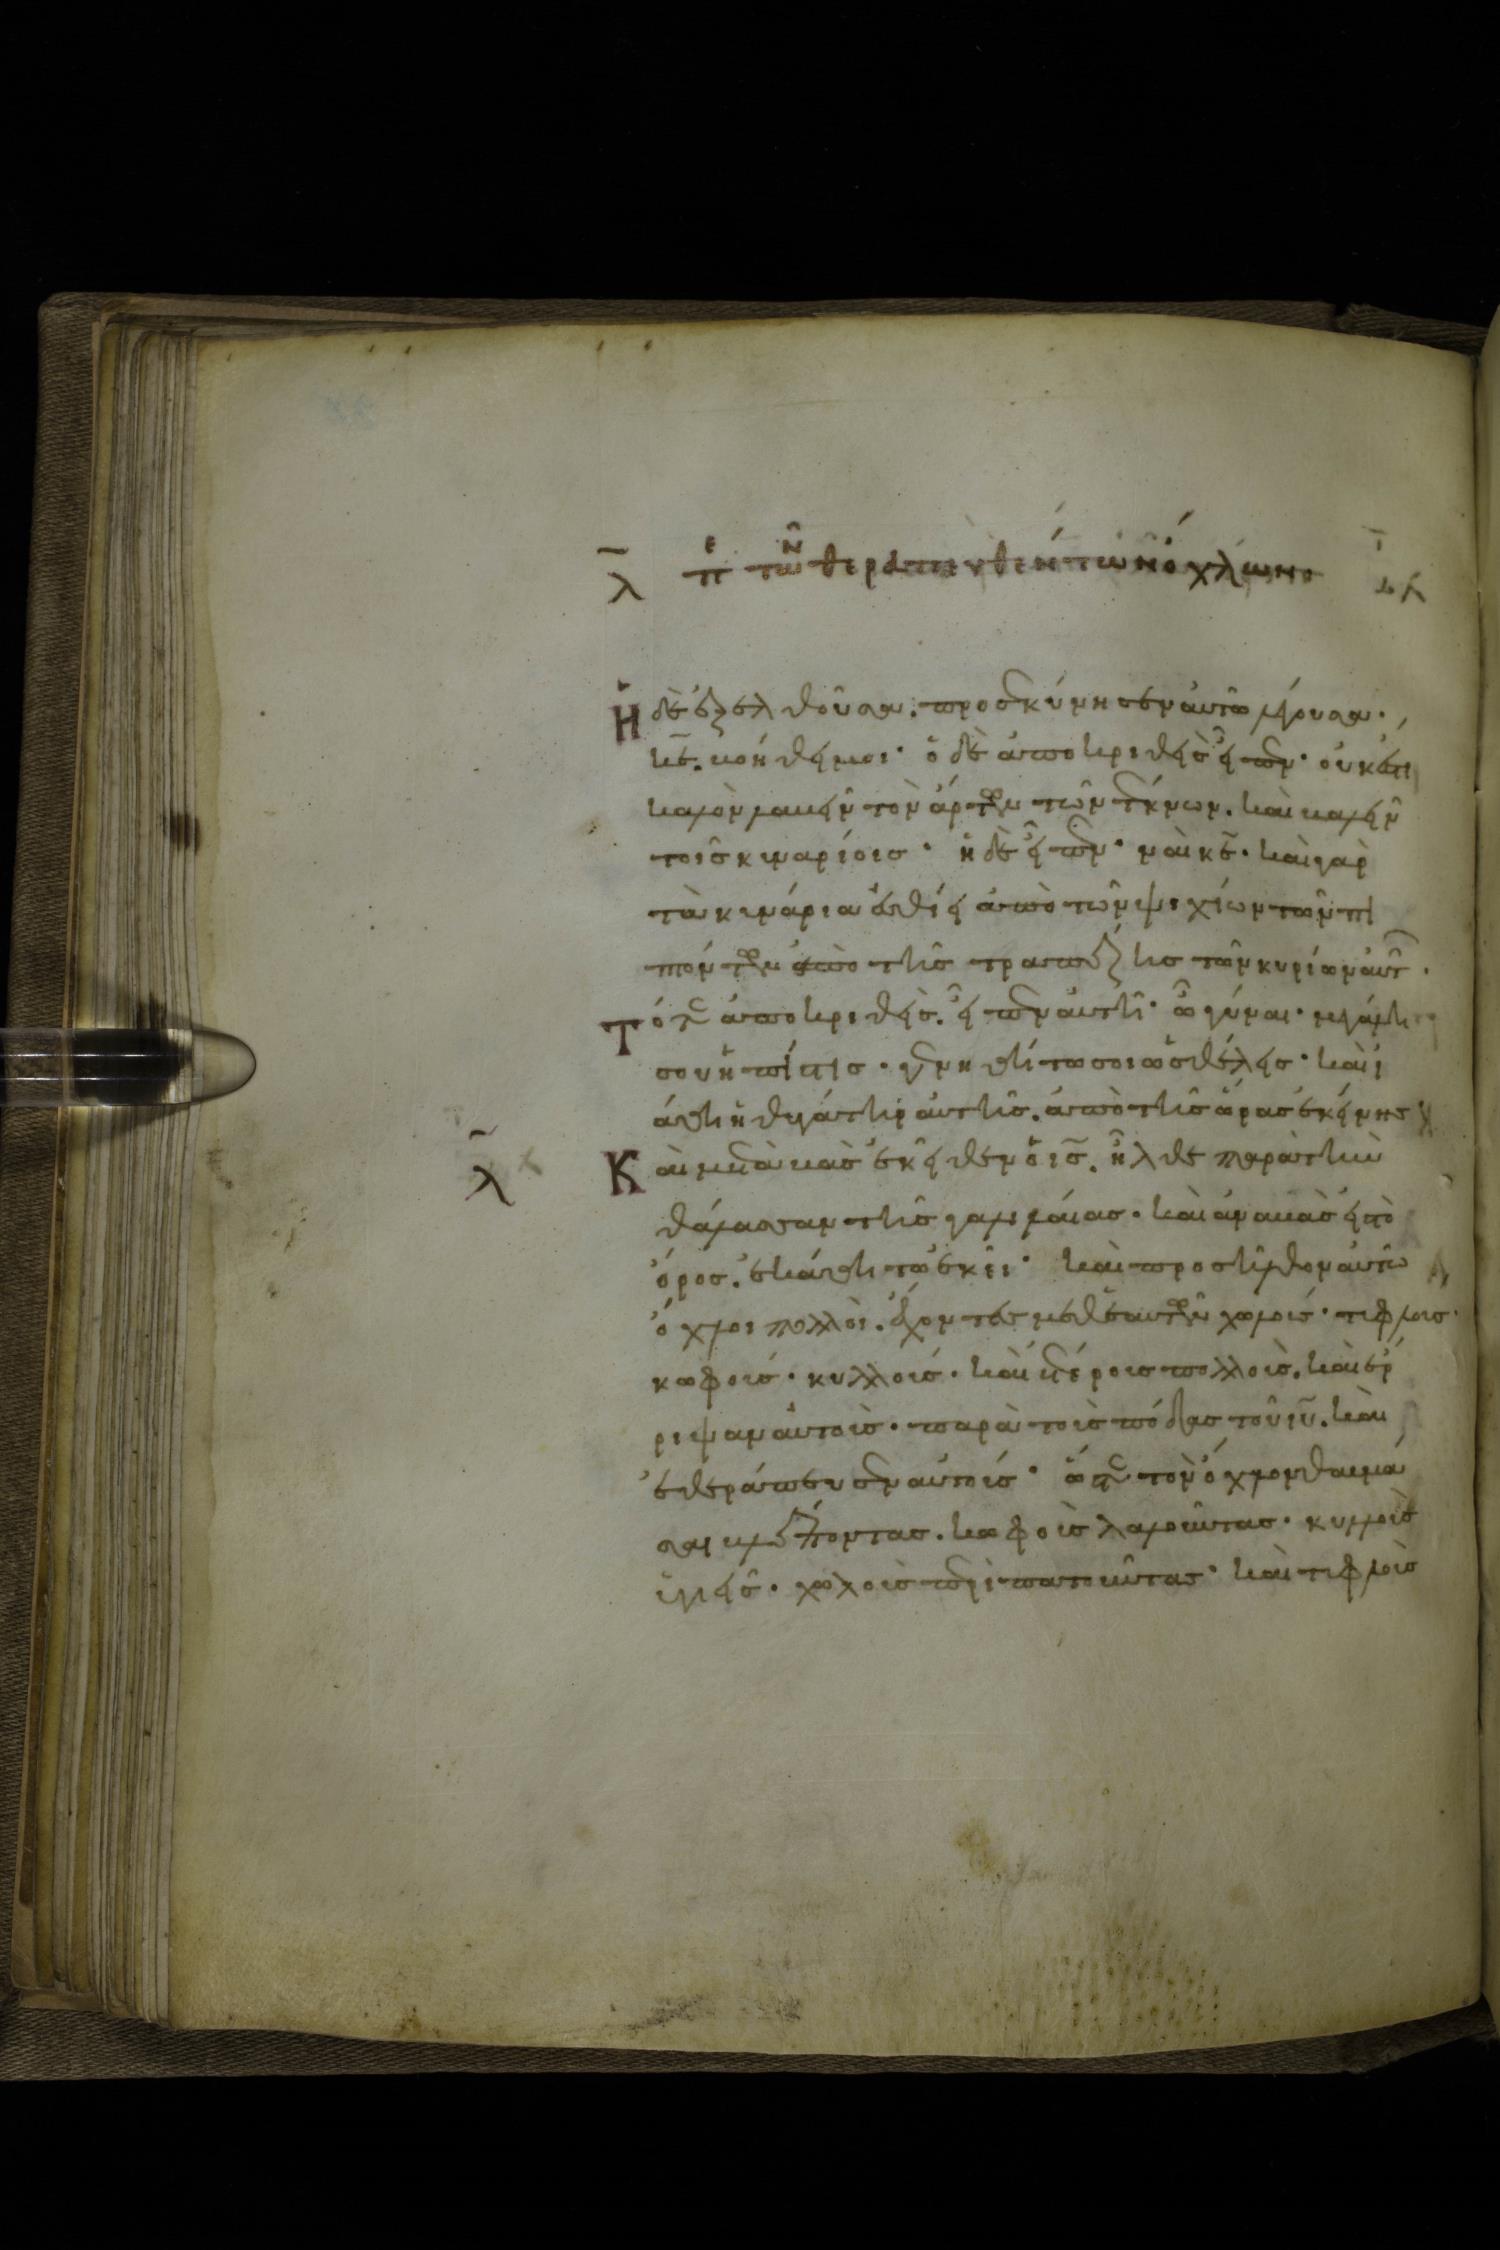 λ πε τῶν θεραπευθέντων ὄχλων
Ἡ δὲ ἐξελθοῦσα. προσεκύνησεν αὐτῶ λέγουσα.
κε. βοήθει μοι· ὁ δὲ ἀποκριθεὶς εἶπεν· οὐκ ἔστι
καλὸν λαβεῖν τὸν ἄρτον τῶν τέκνων. καὶ βαλεῖν
τοῖς κυναρίοις· ἡ δὲ εἶπεν· ναὶ κε. καὶ γὰρ
τὰ κυνάρια ἐσθίει ἀπὸ τῶν ψιχίων τῶν πι
πτόντων ἀπὸ τῆς τραπέζης τῶν κυρίων αὐτ.
Τότε ἀποκριθεὶς. εἶπεν αὐτῆ· ὦ γύναι· μεγάλη
σου ἡ πίστις. γενηθήτω σοι ὡς θέλεις· καὶ ἰ
άθη ἡ θυγάτηρ αὐτῆς. ἀπὸ τῆς ὥρας ἐκείνης
λ
Καὶ μεταβὰς ἐκεῖθεν ὁ ις. ἦλθε παρὰ τὴν
θάλασσαν τῆς γαλιλαίας. καὶ ἀναβὰς εἰς τὸ
ὄρος. ἐκάθητο ἐκεῖ· καὶ προσῆλθον αὐτῶ
ὄχλοι πολλοὶ. ἔχοντες μεθ ἑαυτῶν χωλούς. τυφλούς.
κωφούς. κυλλούς. καὶ ἑτέρους πολλοὺς. καὶ ἔρ
ριψαν αὐτοὺς. παρὰ τοὺς πόδας τοῦ ιυ. καὶ
ἐθεράπευσεν αὐτούς· ὥστε τὸν ὄχλον θαυμά
σαι βλέποντας. κωφοὺς λαλοῦντας. κυλλοὺς
ὑγιεῖς. χωλοὺς περιπατοῦντας· καὶ τυφλοὺς